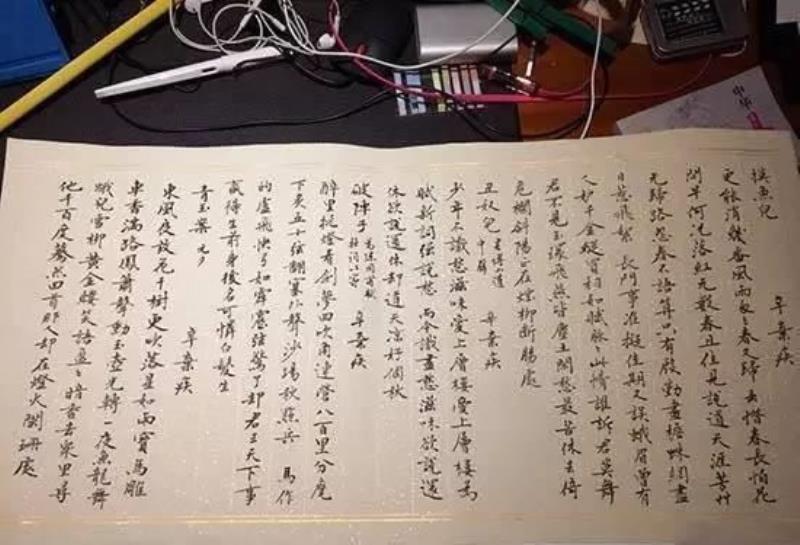 摸魚兒
辛棄疾
更能消幾番風雨匆〻春又歸去惜春長怕花
開早何況落紅无數春且住見說道天涯芳艸
无歸路怨春不語算只有殷勤畫檐蛛網盡
日惹飛絮 長門事准擬佳期又誤蛾眉曾有
人妒千金縱買相如賦脈〻此情誰訴君莫舞
君不見玉環飛燕皆塵土閑愁最苦休去倚
危欄斜陽正在煙柳斷腸處
丑奴兒 書博山道中壁 辛棄疾
少年不識愁滋味愛上層樓愛上層樓為
賦新詞強說愁 而今識盡愁滋味欲說還
休欲說還休却道天涼好個秋
破陣子 為陳同甫賦壯詞以寄 辛棄疾
醉里挑燈看劍夢回吹角連營八百里分麾
下炙五十弦翻塞外聲沙場秋點兵 馬作
的盧飛快弓如霹靂弦驚了却君王天下事
贏得生前身後名可憐白髮生
青玉案 元夕
辛棄疾
東風夜放花千樹更吹落星如雨寶馬雕
車香滿路鳳簫聲動玉壺光轉一夜魚龍舞
蛾兒雪柳黃金縷笑語盈〻暗香去眾里尋
他千百度驀然回首那人却在燈火闌珊處
中华